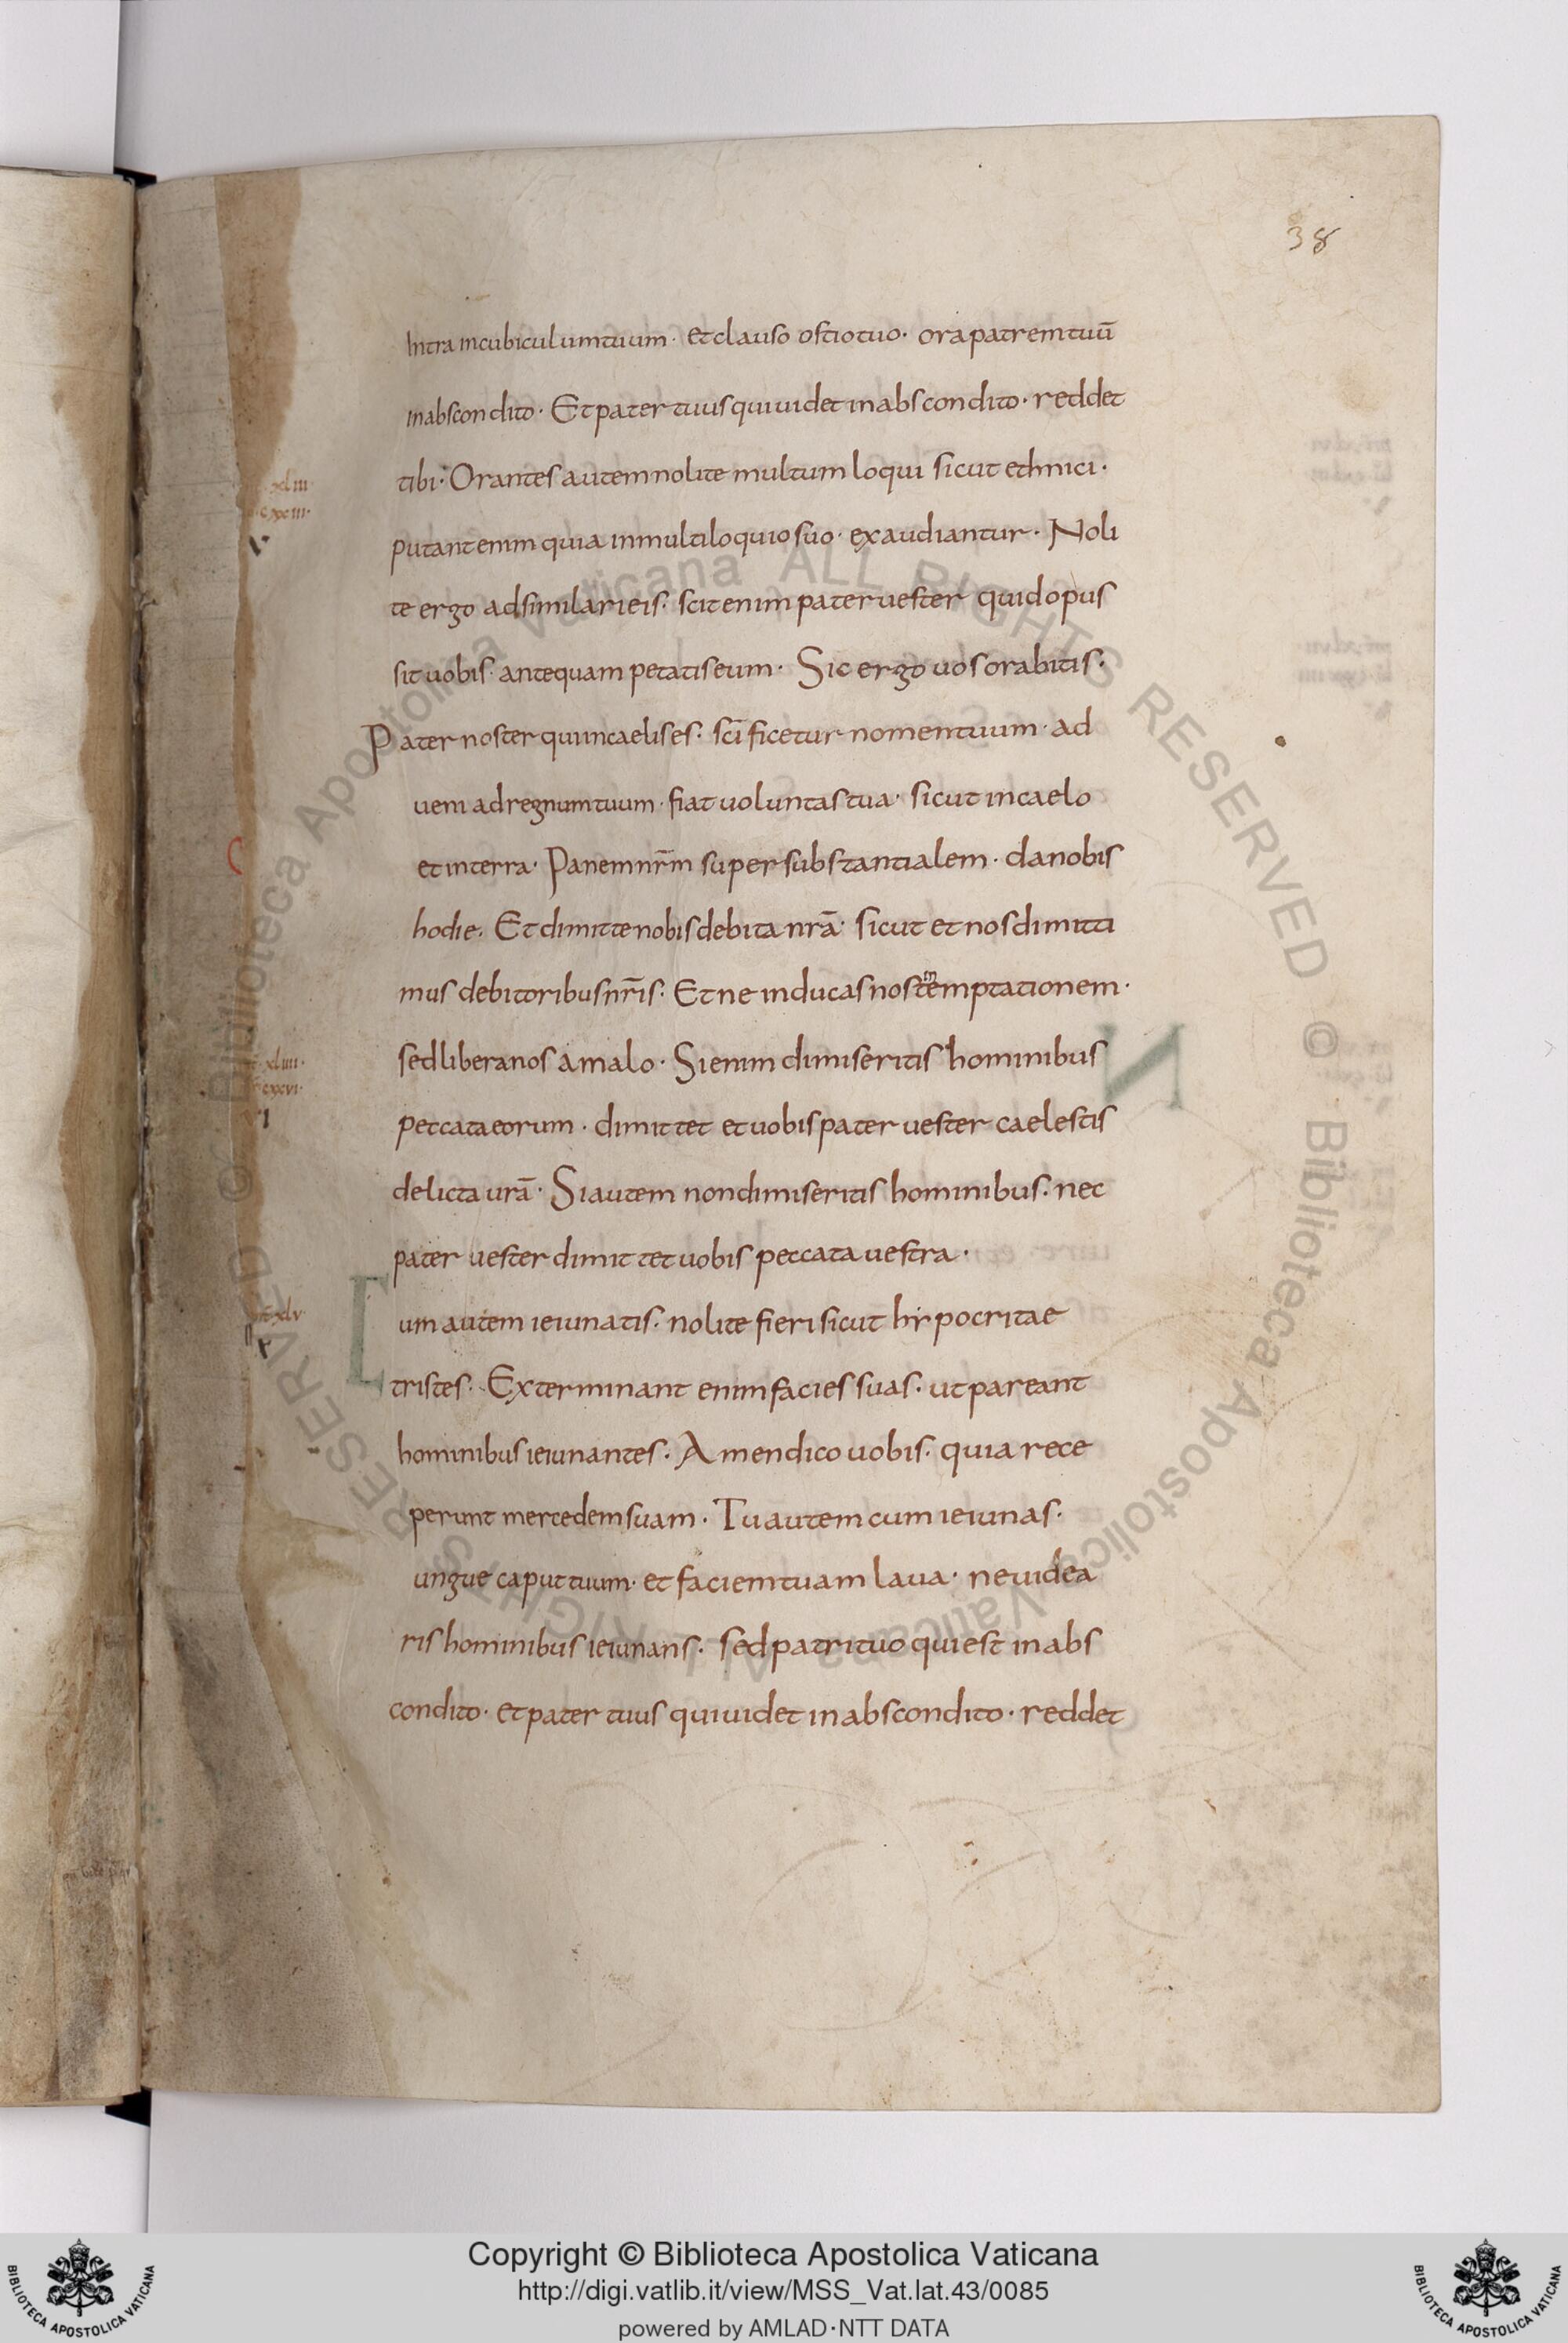 38
Intra in cubiculum tuum · et clauso ostio tuo · ora patrem tuū
in abscondito · Et pater tuus qui uidet in abscondito · reddet
tibi · Orantes autem nolite multum loqui sicut ethnici ·
xliii
putant enim quia in multiloquio suo · exaudiantur · Noli
te ergo adsimilari eis · scit enim pater uester quid opus
sit uobis · antequam petatis eum · Sic ergo uos orabitis ·
Pater noster qui in caelis es · sc̄ificetur nomen tuum · ad
ueniad regnum tuum · fiat uoluntas tua · sicut in caelo
et in terra · Panem nr̄m supersubstantialem · da nobis
hodie · Et dimitte nobis debita nrā · sicut et nos dimitti
mus debitoribus nr̄is · Et ne inducas nos in temptationem ·
sed libera nos a malo · Si enim dimiseritis hominibus
xliiii
cxxvi
peccata eorum · dimittet et uobis pater uester caelestis
delicta urā · Si autem non dimiseritis hominibus · nec
pater uester dimittet uobis peccata uestra ·
xlv
Cum autem ieiunatis · nolite fieri sicut hypocritae
tristes · Exterminant enim facies suas · ut pareant
hominibus ieiunantes · Amen dico uobis · quia rece
perunt mercedem suam · Tu autem cum ieiunas ·
ungue caput tuum · et faciem tuam laua · ne uidea
ris hominibus ieiunans · sed patri tuo qui est in abs
condito · et pater tuus qui uidet in abscondito · reddet
© Biblioteca Apostolica Vaticana ALL RIGHTS RESERVED
© Biblioteca Apostolica Vaticana ALL RIGHTS RESERVED
Copyright © Biblioteca Apostolica Vaticana
http://digi.vatlib.it/view/MSS_Vat.lat.43/0085
powered by AMLAD·NTT DATA
BIBLIOTECA APOSTOLICA VATICANA
BIBLIOTECA APOSTOLICA VATICANA